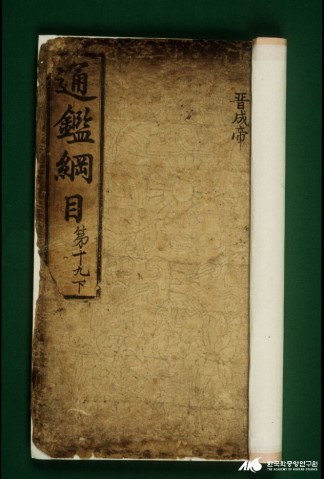 晉成帝
通鑑綱目
第十九下
한국학중앙연구원
THE ACADEMY OF KOREAN STUDIES